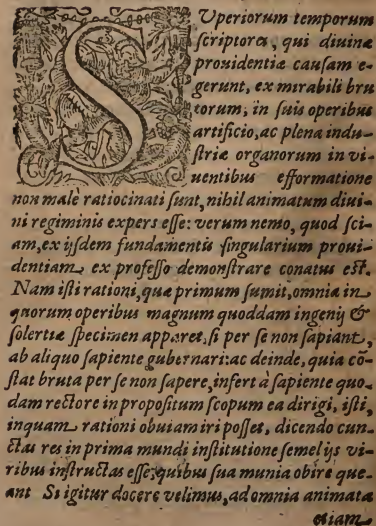 SVperiorum temporum
scriptores, qui diuinæ
prouidentiæ causam e-
gerunt, ex mirabili bru
torum, in suis operibus
artificio, ac plena indu-
striæ organorum in vi-
uentibus efformatione
non malè ratiocinati sunt, nihil animatum diui-
ni regiminis expers esse: verum nemo, quod sci-
am, ex ijsdem fundamentis singularium proui-
dentiam ex professo demonstrare conatus est.
Nam isti rationi, quæ primum sumit, omnia in
quorum operibus magnum quoddam ingenij &
solertiæ specimen apparet, si per se non sapiant,
ab aliquo sapiente gubernari: ac deinde, quia cō-
stat bruta per se non sapere, infert à sapiente quo-
dam rectore in propositum scopum ea dirigi, isti,
inquam rationi obuiam iri posset, dicendo cun-
ctas res in prima mundi institutione semel ijs vi-
ribus instructas esse, quibus sua munia obire que-
ant Si igitur docere velimus, ad omnia animata
etiam